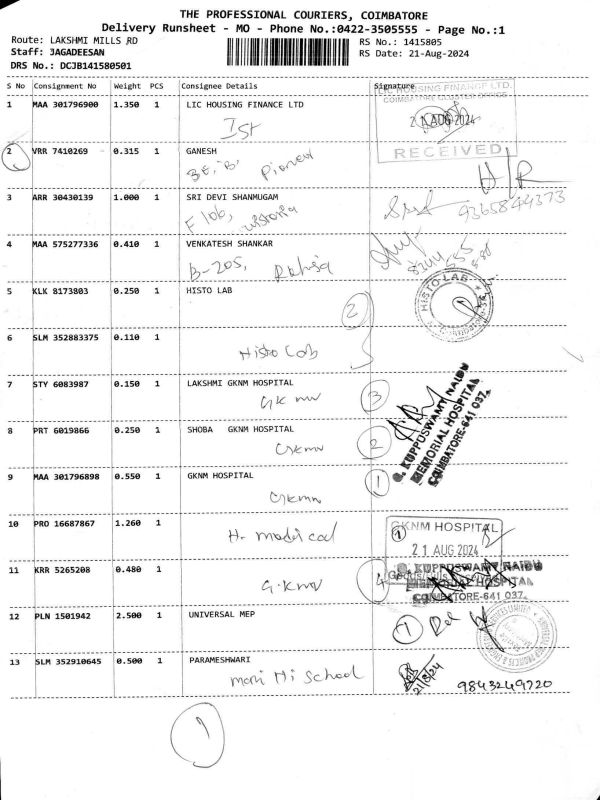 THE PROFESSIONAL COURIERS, COIMBATORE
Delivery Runsheet - MO - Phone No.:0422-3505555 - Page No.:1
Route: LAKSHMI MILLS RD
Staff: JAGADEESAN
DRS No.: DCJB141580501
RS No.: 1415805
RS Date: 21-Aug-2024
S No Consignment No Weight PCS Consignee Details Signature
1 MAA 301796900 1.350 1 LIC HOUSING FINANCE LTD
Ist
LIC HOUSING FINANCE LTD.
COIMBATORE CLUSTER OFFICE
21 AUG 2024
RECEIVED
2 VRR 7410269 0.315 1 GANESH
3E, 'B', Pioneer
3 ARR 30430139 1.000 1 SRI DEVI SHANMUGAM
F 106,
9365844373
4 MAA 575277336 0.410 1 VENKATESH SHANKAR
B-205,
5 KLK 8173803 0.250 1 HISTO LAB
HISTO LAB
2
6 SLM 352883375 0.110 1
Histo Lab
7 STY 6083987 0.150 1 LAKSHMI GKNM HOSPITAL
GKNM
3
G. KUPPUSWAMY NAIDU
MEMORIAL HOSPITAL
COIMBATORE-641 037.
8 PRT 6019866 0.250 1 SHOBA GKNM HOSPITAL
GKNM
2
9 MAA 301796898 0.550 1 GKNM HOSPITAL
GKNM
1
10 PRO 16687867 1.260 1
H- medical
GKNM HOSPITAL
1
21 AUG 2024
11 KRR 5265208 0.480 1
G.KNM
4
G. KUPPUSWAMY NAIDU
MEMORIAL HOSPITAL
COIMBATORE-641 037.
12 PLN 1501942 2.500 1 UNIVERSAL MEP
1
13 SLM 352910645 0.500 1 PARAMESHWARI
Mani Hi School
21/8/24
9843249720
1